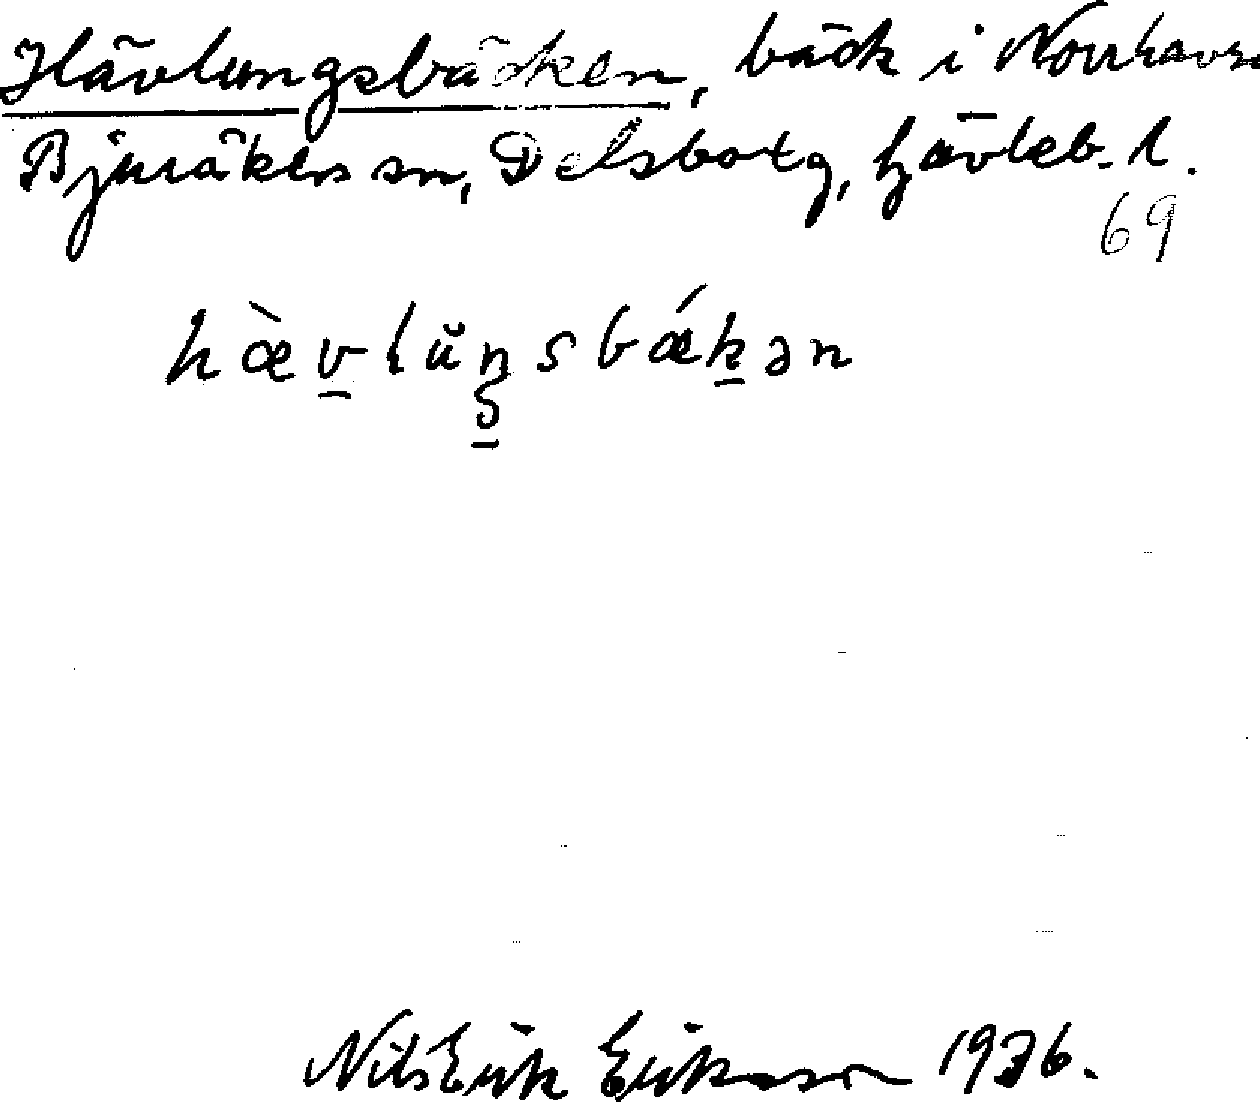 Hävlungsbäcken, bäck i Norrhavra
Bjuråkers sn, Delsbo tg, Gävleb. l.
69
hæ̀v̲lŭŋsbǽk̲ən
Nils Erik Eriksson 1936.